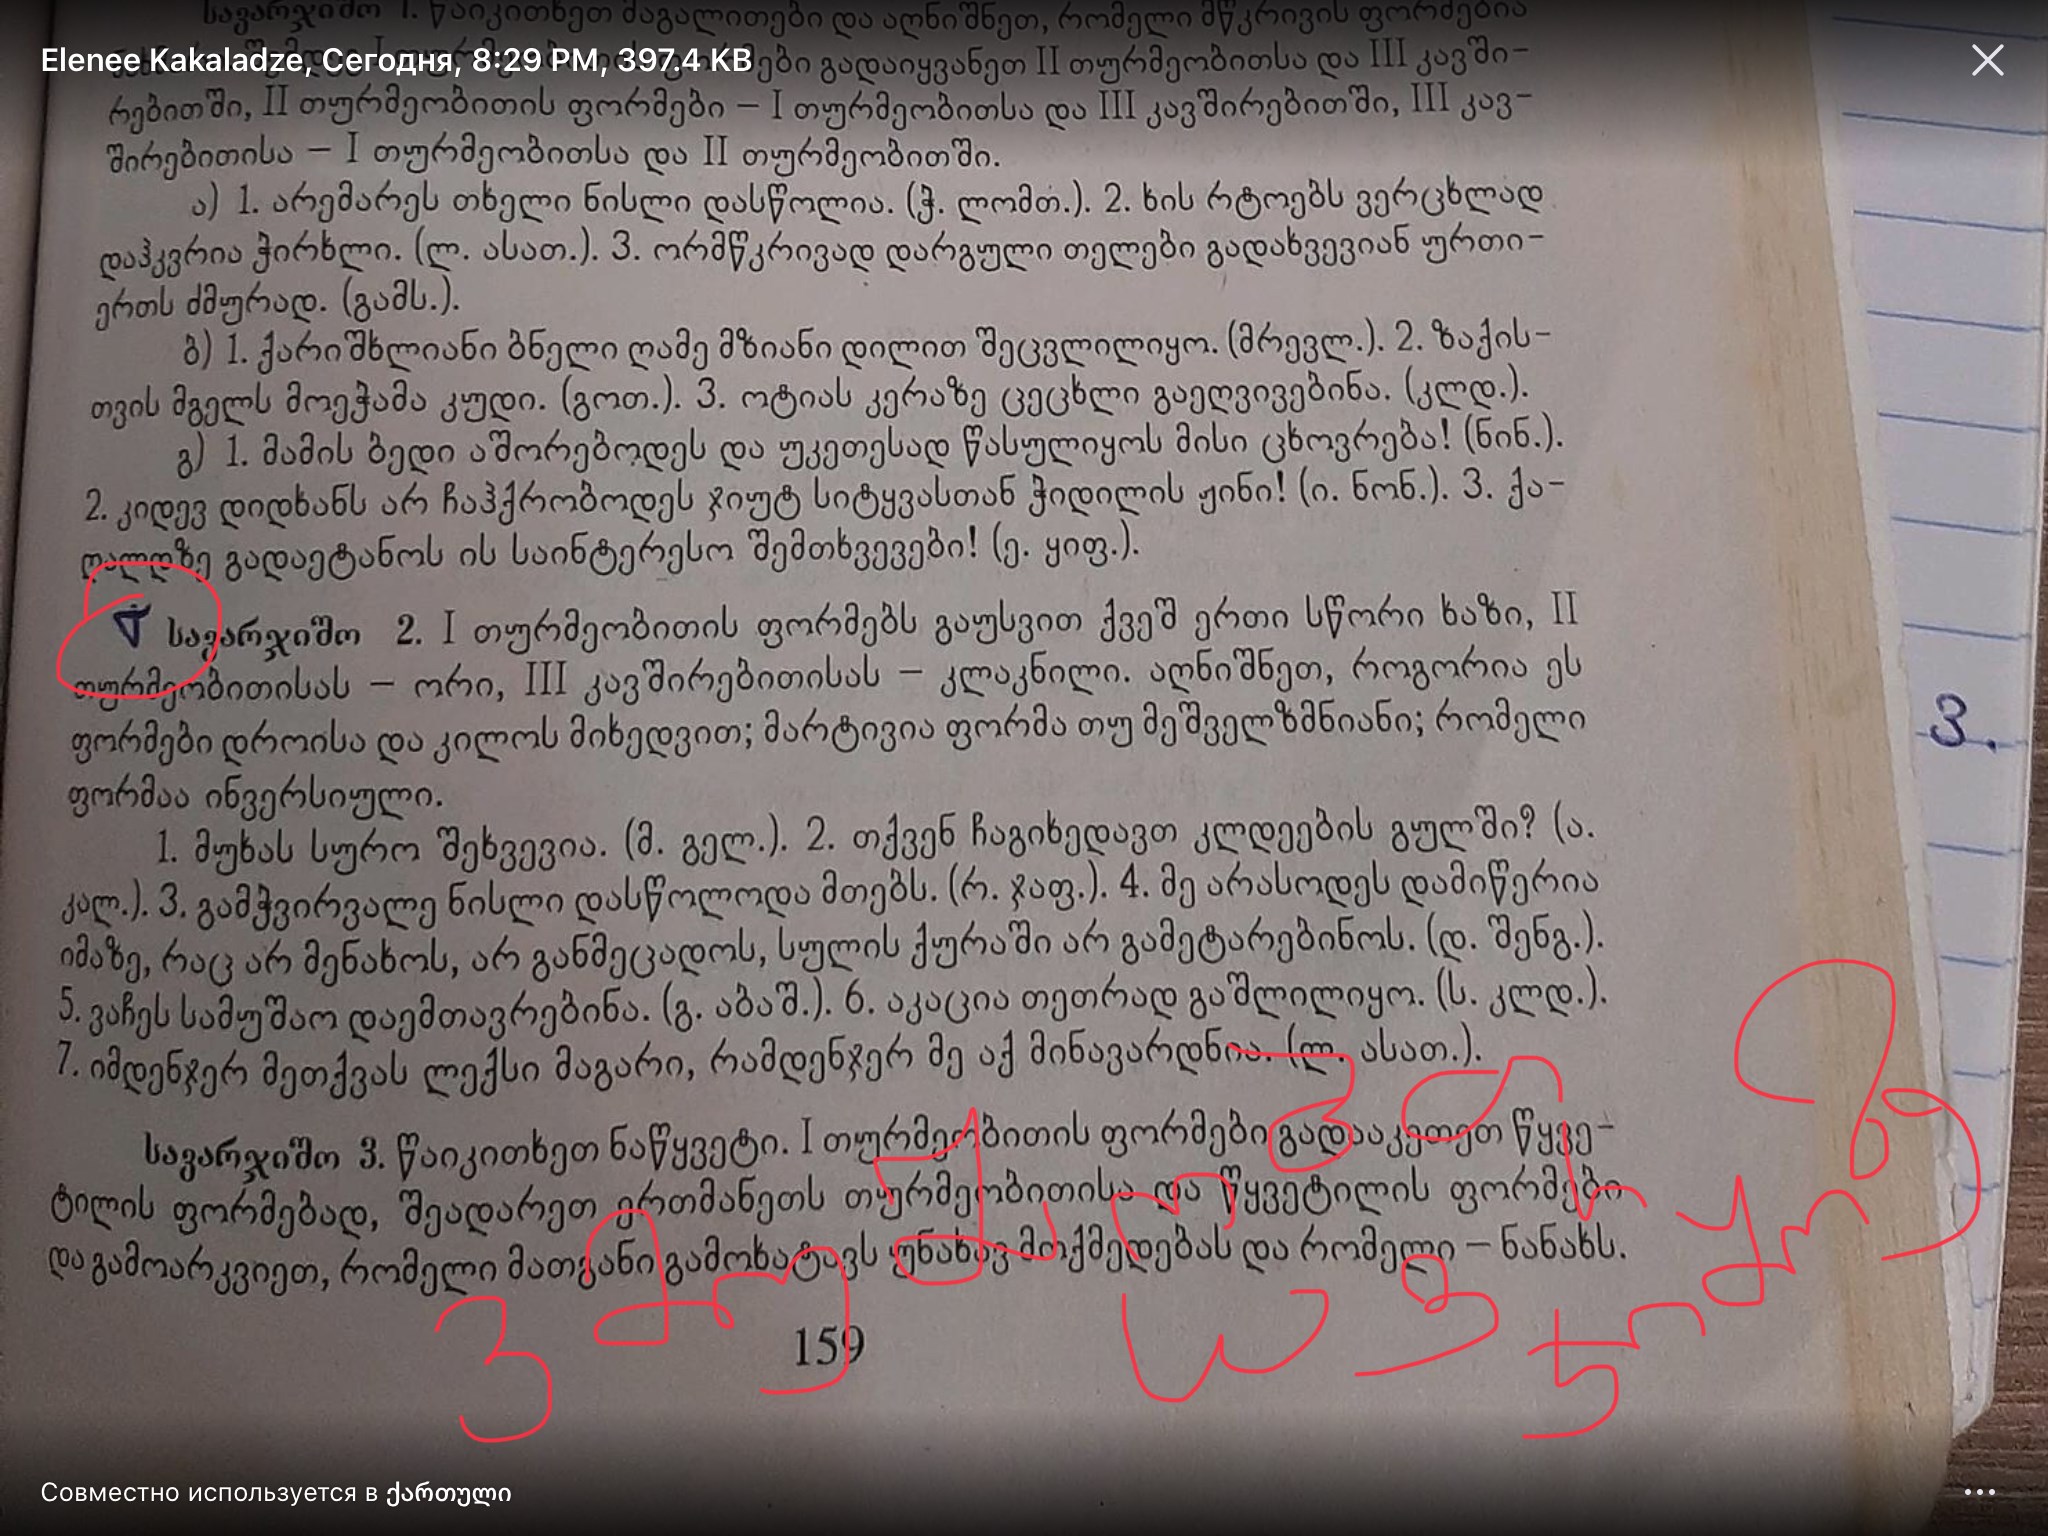 სავარჯიშო 1. წაიკითხეთ მაგალითები და აღნიშნეთ, რომელი მწკრივის ფორმებია
Elenee Kakaladze, Сегодня, 8:29 PM, 397.4 KB
გადაიყვანეთ II თურმეობითსა და III კავში-
რებითში, II თურმეობითის ფორმები – I თურმეობითსა და III კავშირებითში, III კავ-
შირებითისა – I თურმეობითსა და II თურმეობითში.
ა) 1. არემარეს თხელი ნისლი დასწოლია. (ჭ. ლომთ.). 2. ხის რტოებს ვერცხლად
დაჰკვრია ჭირხლი. (ლ. ასათ.). 3. ორმწკრივად დარგული თელები გადახვევიან ურთი-
ერთს ძმურად. (გამს.).
ბ) 1. ქარიშხლიანი ბნელი ღამე მზიანი დილით შეცვლილიყო. (მრევლ.). 2. ზაქის-
თვის მგელს მოეჭამა კუდი. (გოთ.). 3. ოტიას კერაზე ცეცხლი გაეღვივებინა. (კლდ.).
გ) 1. მამის ბედი აშორებოდეს და უკეთესად წასულიყოს მისი ცხოვრება! (ნინ.).
2. კიდევ დიდხანს არ ჩაჰქრობოდეს ჯიუტ სიტყვასთან ჭიდილის ჟინი! (ი. ნონ.). 3. ქა-
ღალდზე გადაეტანოს ის საინტერესო შემთხვევები! (ე. ყიფ.).
სავარჯიშო 2. I თურმეობითის ფორმებს გაუსვით ქვეშ ერთი სწორი ხაზი, II
თურმეობითისას – ორი, III კავშირებითისას – კლაკნილი. აღნიშნეთ, როგორია ეს
ფორმები დროისა და კილოს მიხედვით; მარტივია ფორმა თუ მეშველზმნიანი; რომელი
ფორმაა ინვერსიული.
3.
1. მუხას სურო შეხვევია. (მ. გელ.). 2. თქვენ ჩაგიხედავთ კლდეების გულში? (ა.
კალ.). 3. გამჭვირვალე ნისლი დასწოლოდა მთებს. (რ. ჯაფ.). 4. მე არასოდეს დამიწერია
იმაზე, რაც არ მენახოს, არ განმეცადოს, სულის ქურაში არ გამეტარებინოს. (დ. შენგ.).
5. ვაჩეს სამუშაო დაემთავრებინა. (გ. აბაშ.). 6. აკაცია თეთრად გაშლილიყო. (ს. კლდ.).
7. იმდენჯერ მეთქვას ლექსი მაგარი, რამდენჯერ მე აქ მინავარდნია. (ლ. ასათ.).
სავარჯიშო 3. წაიკითხეთ ნაწყვეტი. I თურმეობითის ფორმები გადააკეთეთ წყვე-
ტილის ფორმებად, შეადარეთ ერთმანეთს თურმეობითისა და წყვეტილის ფორმები
და გამოარკვიეთ, რომელი მათგანი გამოხატავს უნახავ მოქმედებას და რომელი – ნანახს.
159
Совместно используется в ქართული